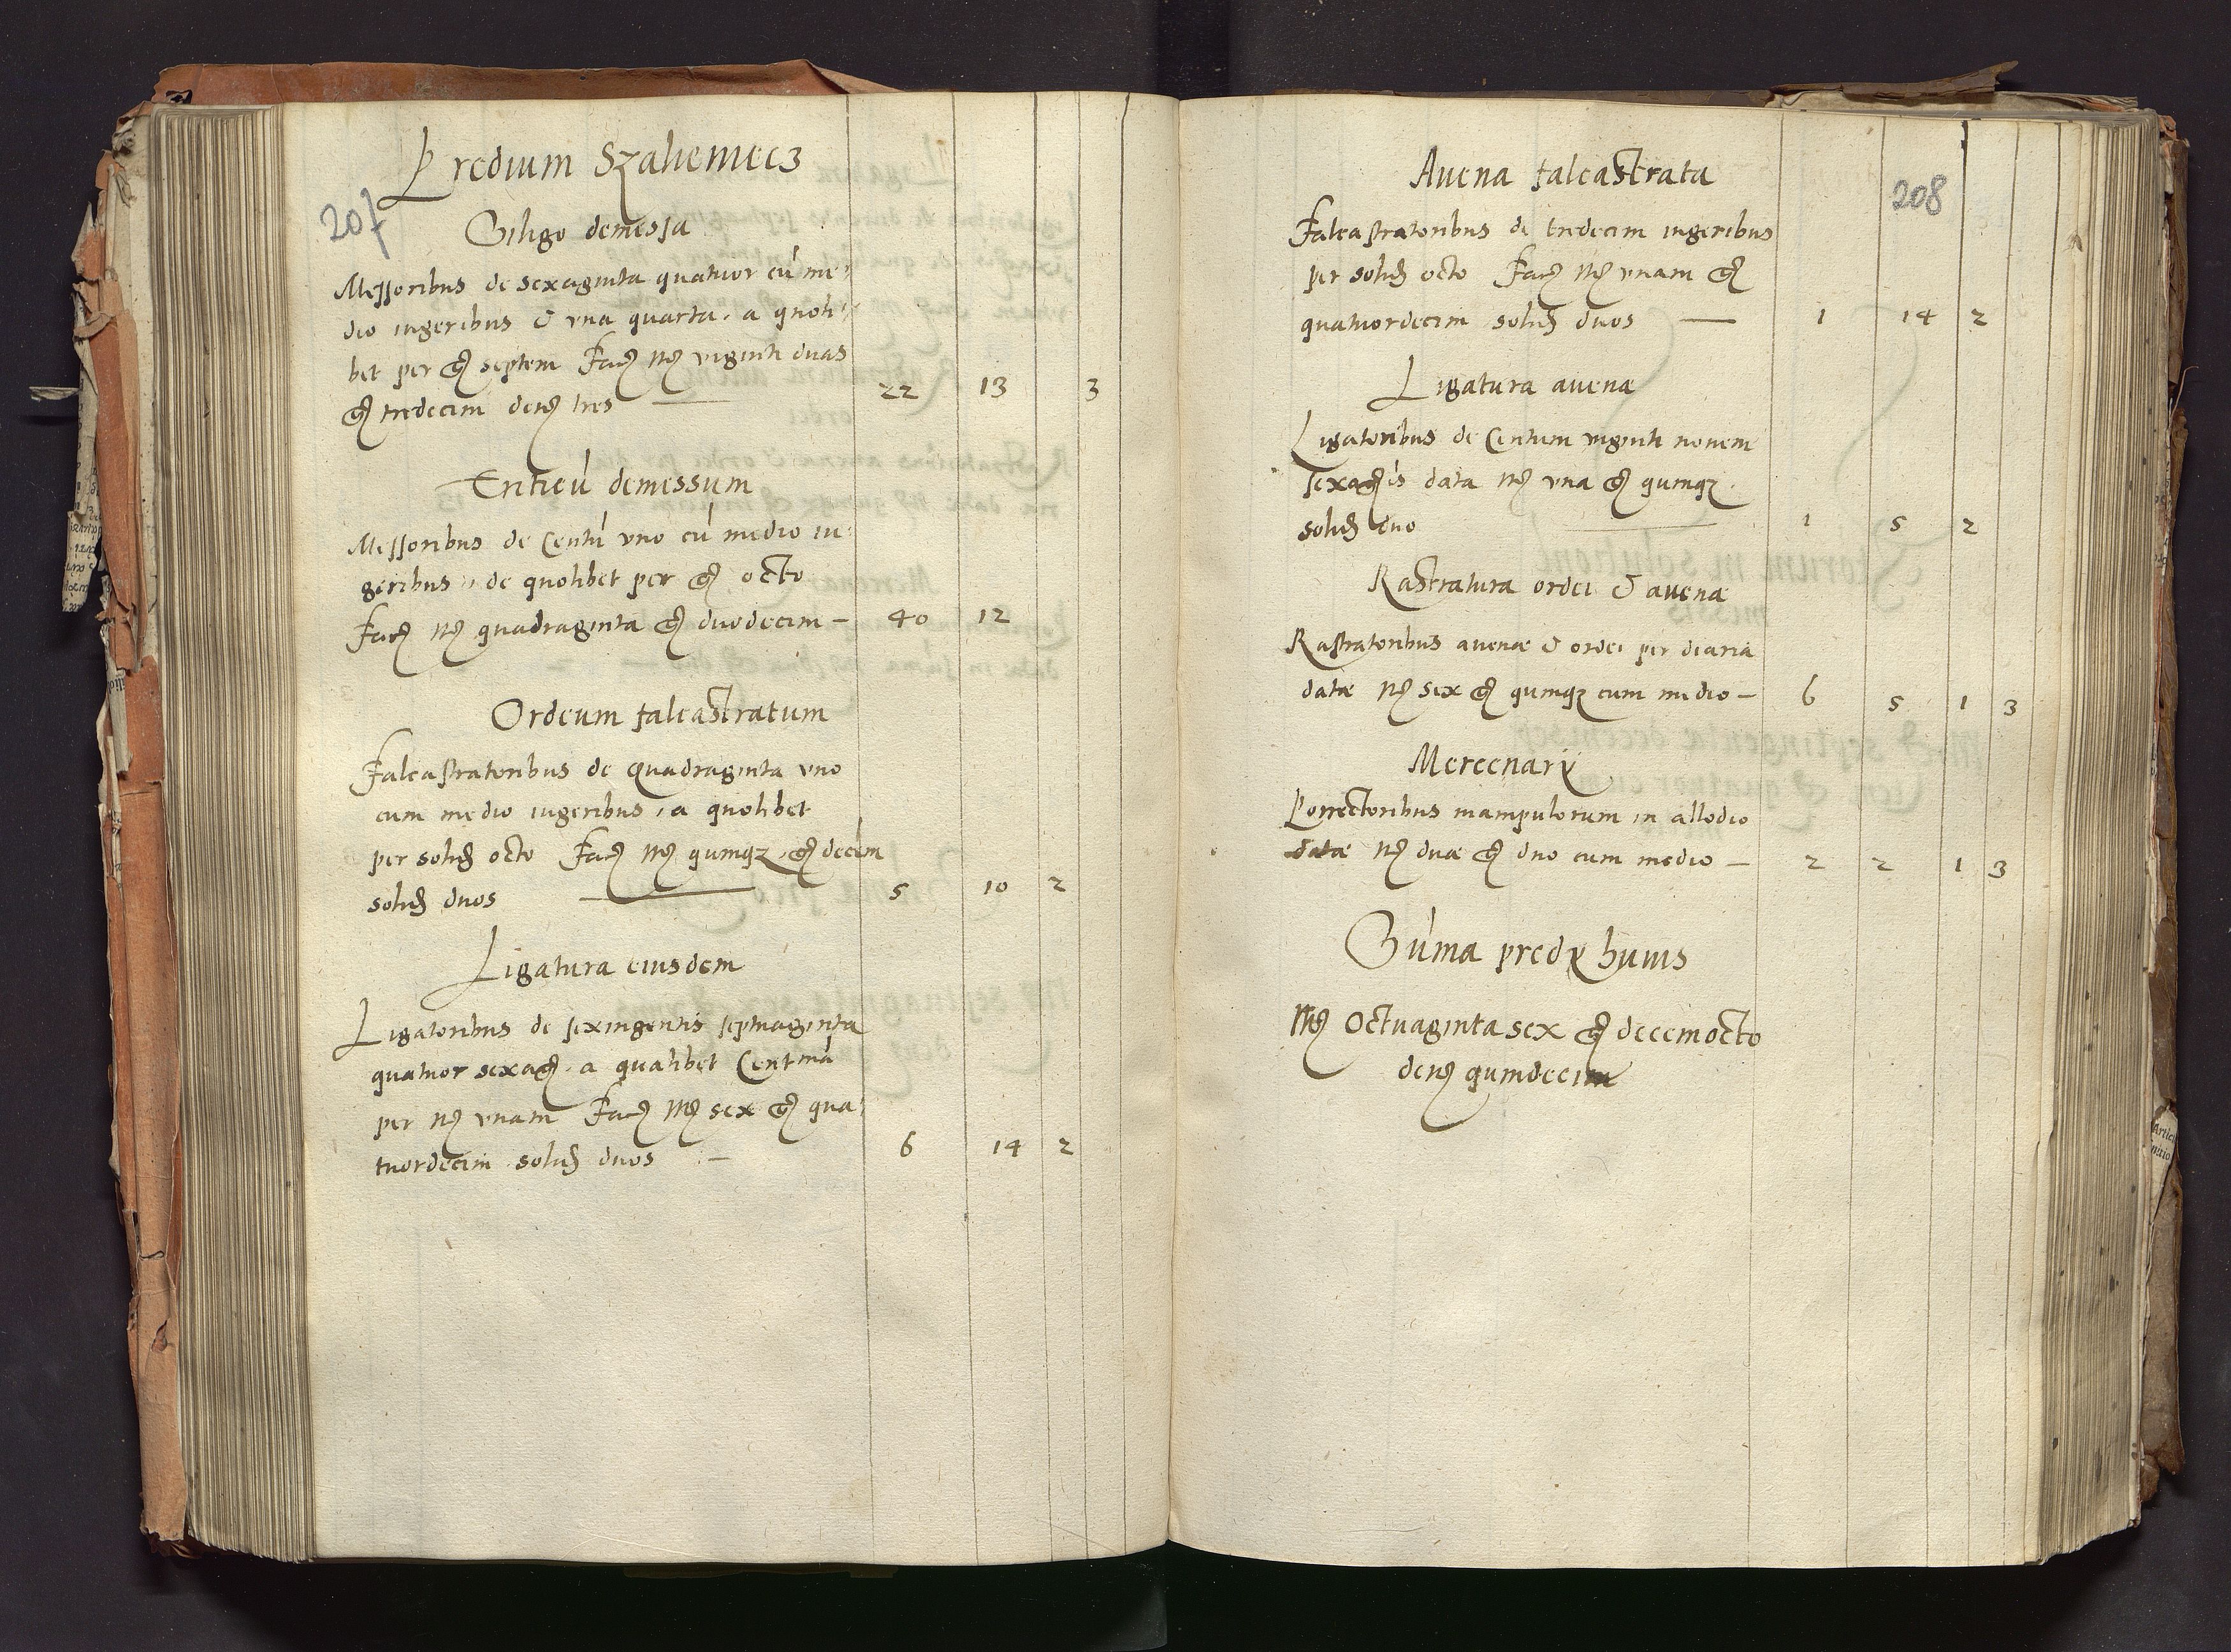 Predium Szaliemiecz
207
Siligo demessa
Messoribus de sexaginta quatuor cu me,
dio iugeribus & vna quarta, a quoli,
bet per gr septem Facit mr viginti duas
gr tredecim den tres — 22 13 3
Triticu demessum
Messoribus de Centu vno cu medio iu,
geribus, de quolibet per gr octo
Facit mr quadraginta gr duodecim — 40 12
Ordeum falcastratum
Falcastratoribus de Quadraginta vno
cum medio iugeribus, a quolibet
per solid octo Facit mr quinqz, gr decem
solid duos — 5 10 2
Ligatura eiusdem
Ligatoribus de sexingentis septuaginta
quatuor sexag, a qualibet Centma
per mr vnam Facit mr sex gr qua,
tuordecim solid duos — 6 14 2
208
Auena falcastrata
Falcastratoribus de tredecim iugeribus
per solid octo Facit mr vnam gr
quatuordecim solid duos — 1 14 2
Ligatura auenæ
Ligatoribus de Centum viginti nouem
sexagis data mr vna gr quinqz
solid duo — 1 5 2
Rastratura ordei & auenæ
Rastratoribus auenæ & ordei per diaria
datæ mr sex gr quinqz cum medio — 6 5 1 3
Mercenarÿ
Porrectoribus manipulorum in allodio
datæ mr duæ gr duo cum medio — 2 2 1 3
Suma predÿ huius
Mr Octuaginta sex gr decemocto
den quindecim